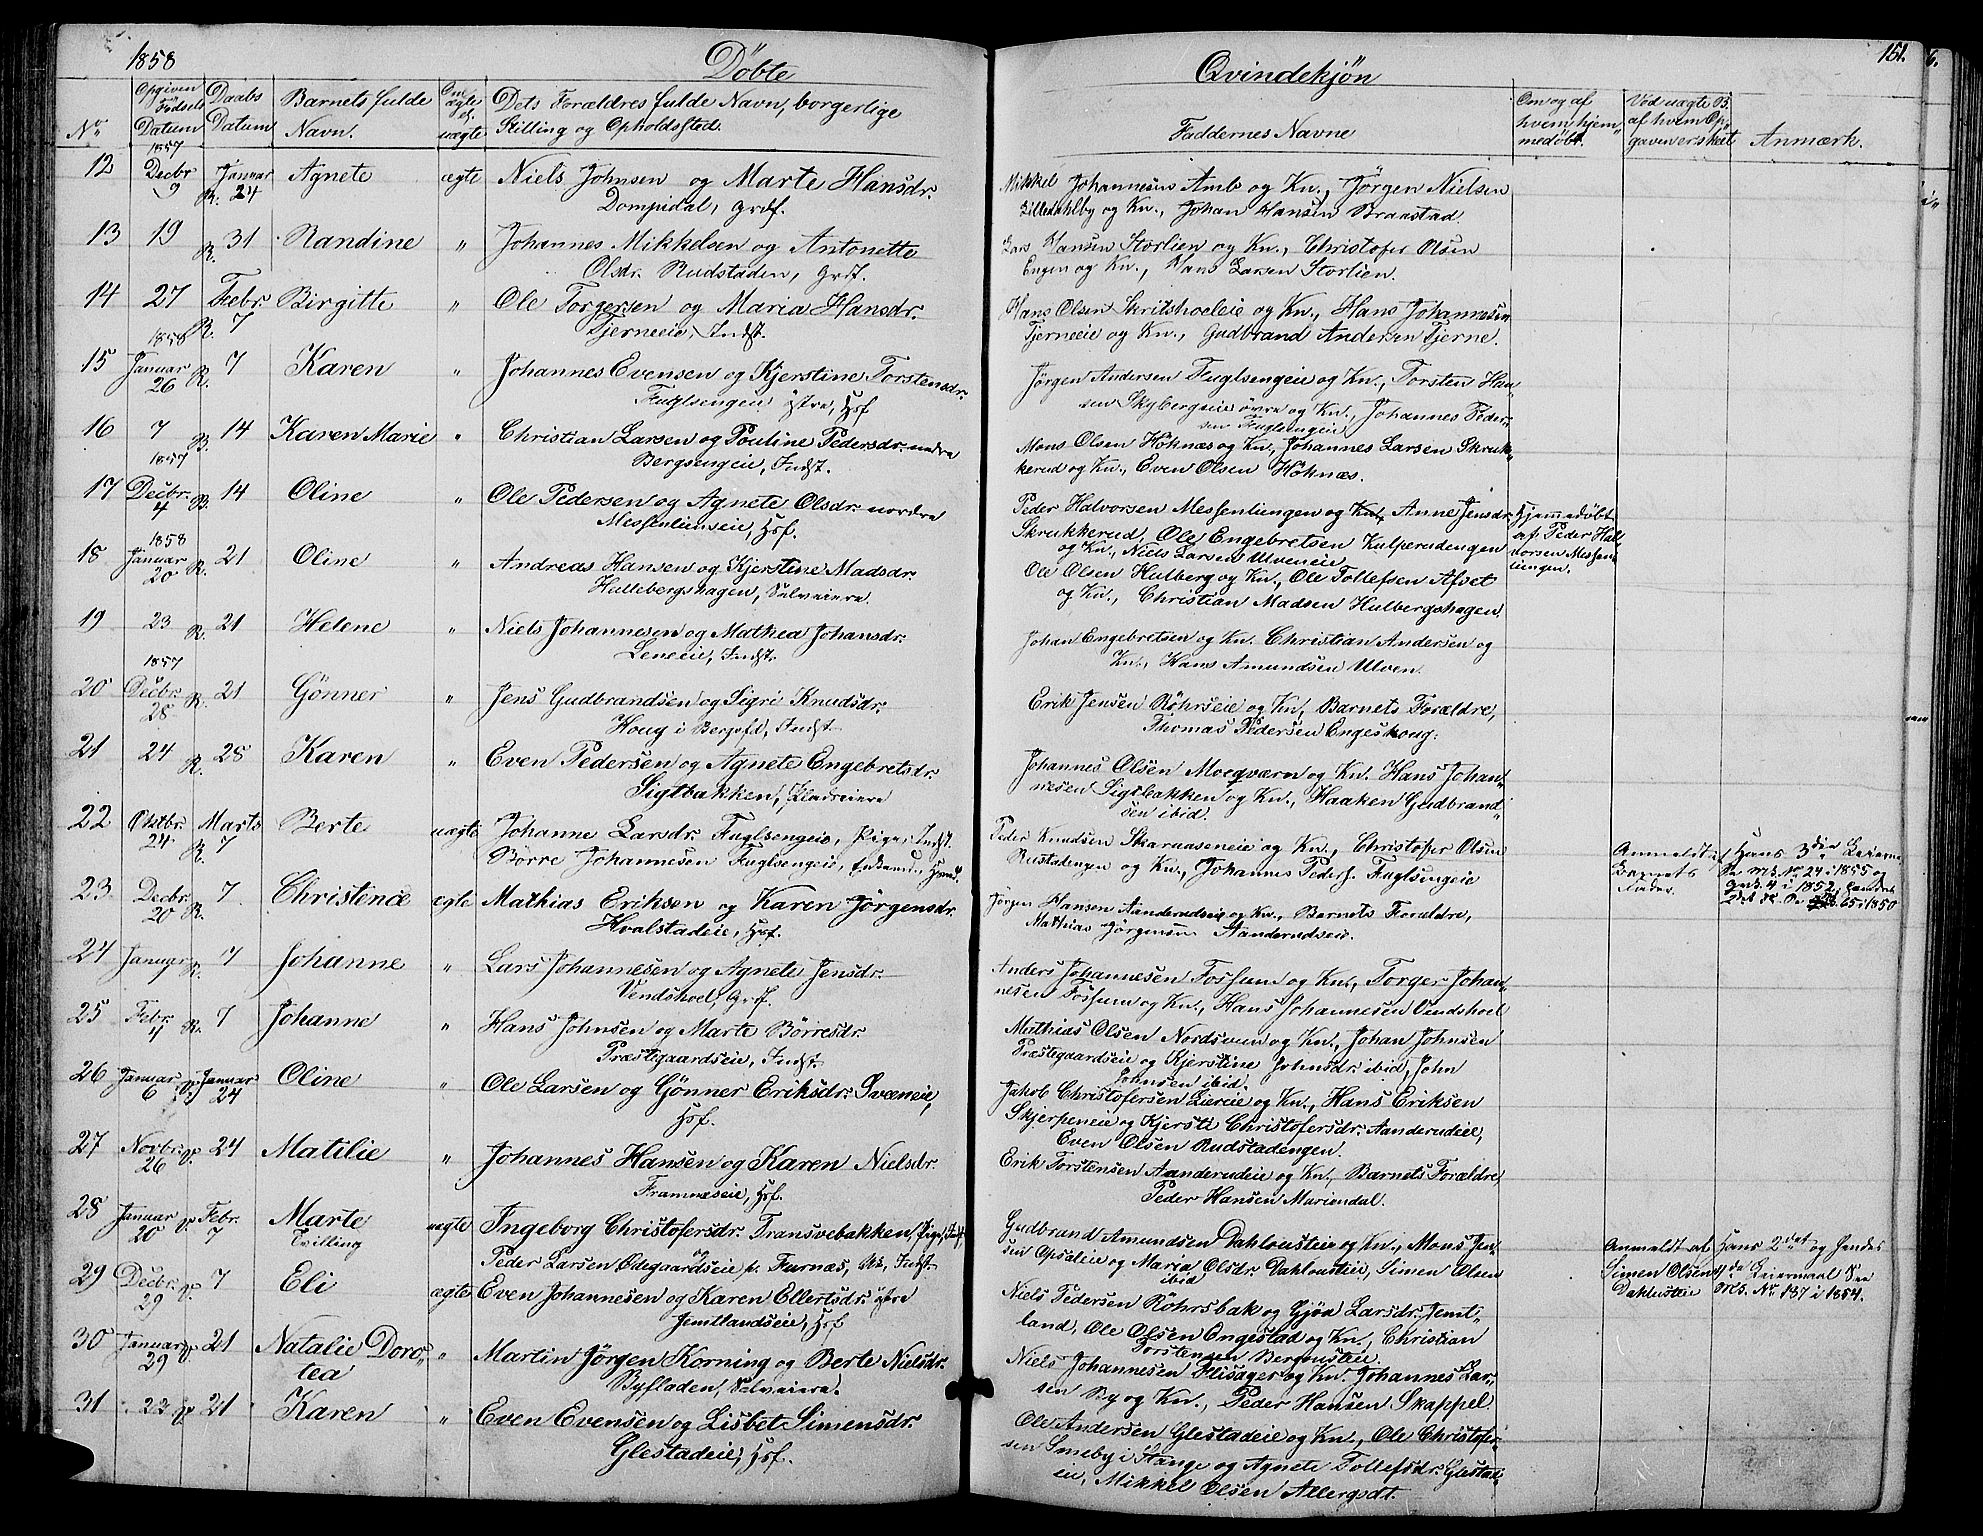 1858 Döbte Qvindekjön 151.
No Opgiven Födsels Datum Daabs Datum Barnets fulde Navn. Om ægte el. uægte Dets Forældres fulde Navn, borgerlige Stilling og Opholdssted. Faddernes Navne Om og af hvem hjemmedøbt. Ved uægte B. af hvem Opgaven er skeet Anmærk.
12 1857 Decbr 9 Januar R. 24 Agnete ægte Niels Johnsen og Marte Hansdr.
Dompidal, Grdf.
Mikkel Johannesens Amb og Kn., Jörgen Nielsen
Lilledahlby og Kn., Johan Hansen Braastad.
13 19 R. 31 Randine " Johannes Mikkelsen og Antonette
Olsdr. Rudstaden, Grdf.
Lars Hansen Storlien og Kn., Christofer Olsen
Engen og Kn., Hans Larsen Storlien.
14 27 Febr. R. 7 Birgitte " Ole Torgersen og Maria Hansdr.
Tjerneeie, Indst.
Hans Olsen Skritshoeleie og Kn., Hans Johannesen
Tjerneeie og Kn., Gudbrand Andersen Tjerne.
15 1858 Januar 26 R. 7 Karen " Johannes Evensen og Kjerstine Torstensdr.
Fuglsengeie östre, Hsf
Jörgen Andersen Fuglsengeie og Kn., Torsten Han-
sen Skybergseie övre og Kn., Johannes Peder-
sen Fuglsengeie
16 7 R. 14 Karen Marie " Christian Larsen og Pouline Pedersdr. nedre
Bergsengeie, Indst.
Mons Olsen Höknæs og Kn., Johannes Larsen Skruk-
kerud og Kn., Even Olsen Höknæs.
17 1857 Decbr. 4 R. 14 Oline " Ole Pedersen og Agnete Olsdr. nordre
Messenlienseie, Hsf.
Peder Halvorsen Messenliengen og Kn, Anne Jensdr.
Skrukkerud, Ole Engebretsen Kulperudengen
og Kn., Niels Larsen Ulveneie
Hjemmedöbt
af Peder Hal-
vorsen Messen-
liengen.
18 1858 Januar 20 R. 21 Oline " Andreas Hansen og Kjerstine Madsdr.
Hullebergshagen, Selveiere.
Ole Olsen Hulberg og Kn., Ole Tollefsen Afset
og Kn., Christian Madsen Hulbergshagen.
19 23 R. 21 Helene " Niels Johannesen og Mathea Johansdr.
Leneeie, Indst.
Johan Engebretsen og Kn. Christian Andersen og
Kn., Hans Amundsen Ulven.
20 1857 Decbr. 28 R. 21 Gönner " Jens Gudbrandsen og Sigri Knudsdr.
Houg i Bergsfd, Indst.
Erik Jensen Röhrseie og Kn., Barnets Forældre,
Thomas Pedersen Engeskoug.
21 24 R. 28 Karen " Even Pedersen og Agnete Engebretsdr.
Sigtbakken,
Johannes Olsen Moeqværn og Kn. Hans Johan-
nesen Sigtbakken og Kn., Haaken Gudbrand-
sen ibid.
22 Oktbr. 24 Marts R. 7 Berte uægte Johanne Larsdr. Fuglsengeie, Pige, Indst.
Börre Johannesen Fuglsengeie, Enkemd., Hsmd.
Peder Knudsen Skaraaseneie og Kn., Christofer Olsen
Rustadengen og Kn., Johannes Peders. Fuglsengeie
Anmeldt af
Barnets
Fader.
Hans 3die Leierm.
Se mk No 24 i 1855 og
4 i 1852, hendes
2det Se 65 i 1850
23. Decbr. 20 R. 7. Christence ægte Mathias Eriksen og Karen Jörgensdr.
Hvalstadeie, Hsf.
Jörgen Hansen Aanderudseie og Kn., Barnets Forældre,
Mathias Jörgensen Aanderudseie.
24 Januar R. 7 Johanne " Lars Johannesen og Agnete Jensdr.
Vendshoel, Grdf.
Anders Johannesen Fossum og Kn., Torger Johan-
nesen Fossum og Kn., Hans Johannesen Vendshoel
25 Febr. 4 R. 7 Johanne " Hans Johnsen og Marte Börresdr.
Præstegaardseie, Indst.
Mathias Olsen Nordsveen og Kn., Johan Johnsen
Præstegaardseie og Kjerstine Johnsdr. ibid, John
Johnsen ibid.
26 Januar 6 Januar 24 Oline " Ole Larsen og Gönner Eriksdr. Sveeneie,
Hsf.
Jakob Christofersen Liereie og Kn., Hans Eriksen
Skjerpeneie og Kjersti Christofersdr. Aanderudeie,
Even Olsen Rudstadengen.
27 Novbr. 26 24 Matilie " Johannes Hansen og Karen Nielsdr.
Framneseie, Hsf.
Erik Torstensen Aanderudeie og Kn., Barnets Forældre,
Peder Hansen Mariendal.
28 Januar 20 Febr. 7 Marte
Tvilling uægte Ingeborg Christofersdr. Transvebakken, Pige, Indst.
Peder Larsen Ödegaardseie p. Furnæs, Uk, Indst.
Gudbrand Amundsen Dahlousteie og Kn., Mons Jen-
sen Opsaleie og Maria Olsdr. Dahlousteie, Simen Olsen
ibid
Anmeldt af
Simen Olsen
Dahlusteie
Hans 2det og hendes
1ste Leiermaal See
No. 137 i 1854.
29 Decbr. 29 7 Eli ægte Even Johannesen og Karen Ellertsdr. östre
Jemtlandseie, Hsf
Niels Pedersen Röhrsbak og Gjöa Larsdr. Jemt-
land, Ole Olsen Ongestad og Kn., Christian
Torstensen Bergousteie.
30 Januar 29 21 Natalie Doro-
tea " Martin Jörgen Korning og Berte Nielsdr.
Byfladen, Selveiere.
Niels Johannesen Flisager og Kn. Johannes Lar-
sen By og Kn., Peder Hansen Skappel.
31 22 21 Karen " Even Evensen og Lisbet Simensdr.
Glestadeie, Hsf.
Ole Andersen Glestadeie og Kn., Ole Christofer-
sen Smeby i Stange og Agnete Tollefsdr. Glestad-
eie, Mikkel Olsen Allergodt.